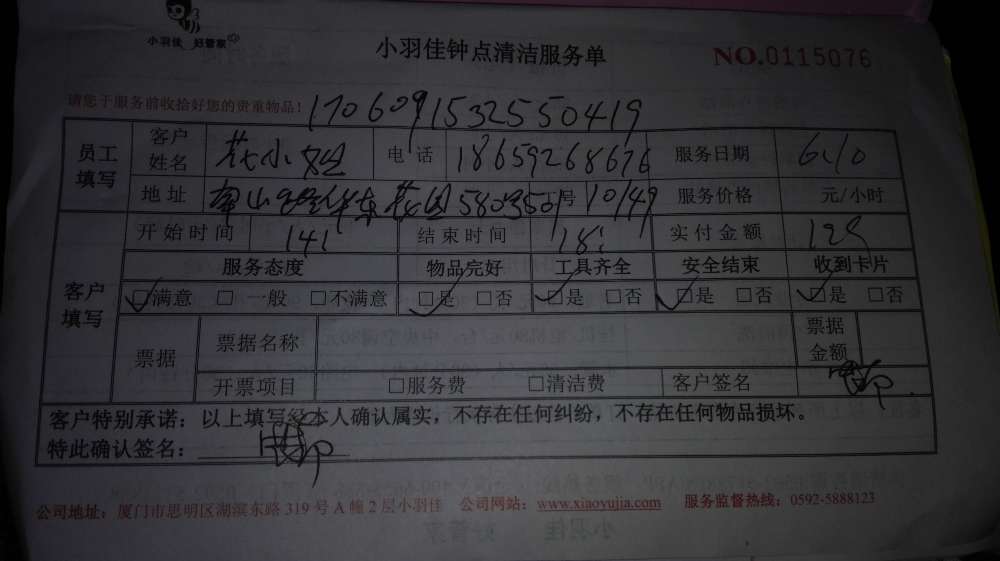 小羽佳 好管家
小羽佳钟点清洁服务单
NO.0115076
请您于服务前收拾好您的贵重物品!
170609153255 50419
员工填写 客户姓名 小姐 电话 18659268676 服务日期 6.10
地址 花园 号 服务价格 元/小时
客户填写 开始时间 14: 结束时间 18: 实付金额
服务态度 物品完好 工具齐全 安全结束 收到卡片
☑满意 □一般 □不满意 ☑是 □否 ☑是 □否 ☑是 □否 ☑是 □否
票据 票据名称 票据金额
开票项目 □服务费 □清洁费 客户签名
客户特别承诺：以上填写经本人确认属实，不存在任何纠纷，不存在任何物品损坏。
特此确认签名：
公司地址：厦门市思明区湖滨东路319号A幢2层小羽佳 公司网站：www.xiaoyujia.com 服务监督热线：0592-5888123